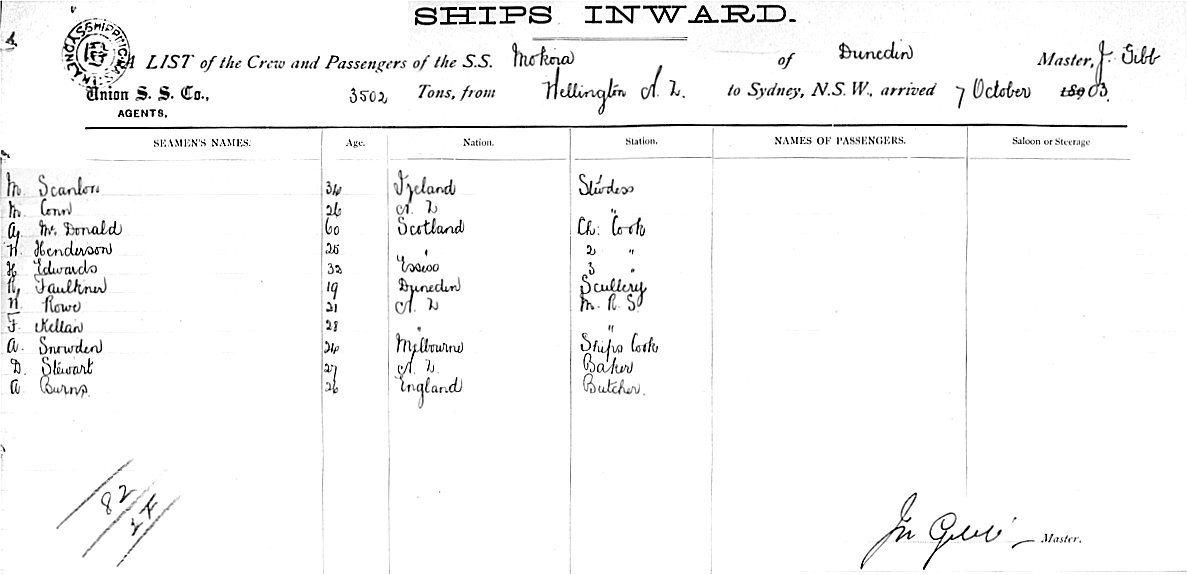 SHIPS INWARD.
A LIST of the Crew and Passengers of the S.S. Mokoia of Dunedin Master, J. Gibb
Union S. S. Co., 3502 Tons, from Wellington N. Z. to Sydney, N.S.W., arrived 7 October 1903
AGENTS,
SEAMEN'S NAMES. Age. Nation. Station. NAMES OF PASSENGERS. Saloon or Steerage
M. Scanlon 34 Ireland Stewdess
M. Conn 26 N. Z. "
A. McDonald 60 Scotland Ch: Cook
H. Henderson 25 " 2 "
H. Edwards 32 3 "
R. Faulkner 19 Dunedin Scullery
N. Rowe 21 N. Z M. R. S.
F. Kellan 28 " "
A. Snowden 24 Melbourne Ships Cook
D. Stewart 27 N. Z. Baker
A Burns. 26 England Butcher.
82
Jn Gibb Master.